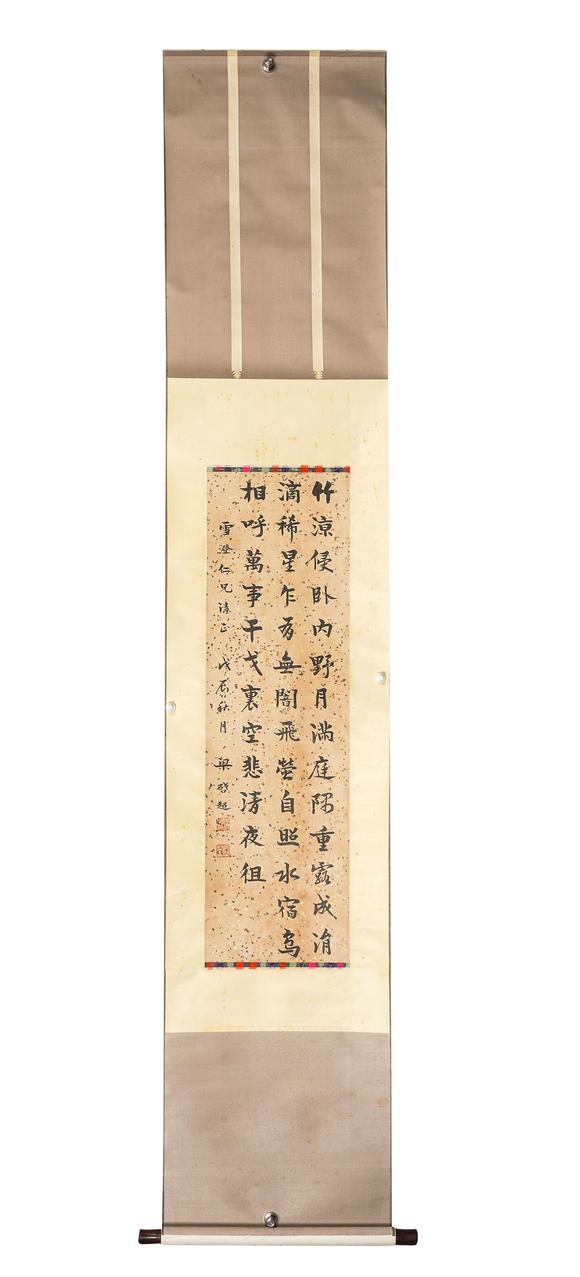 竹涼侵卧內野月滿庭隅重露成涓
滴稀星乍有無闇飛螢自照水宿鳥
相呼萬事干戈裏空悲清夜徂
雪澄仁兄正 戊辰秋月 梁啓超